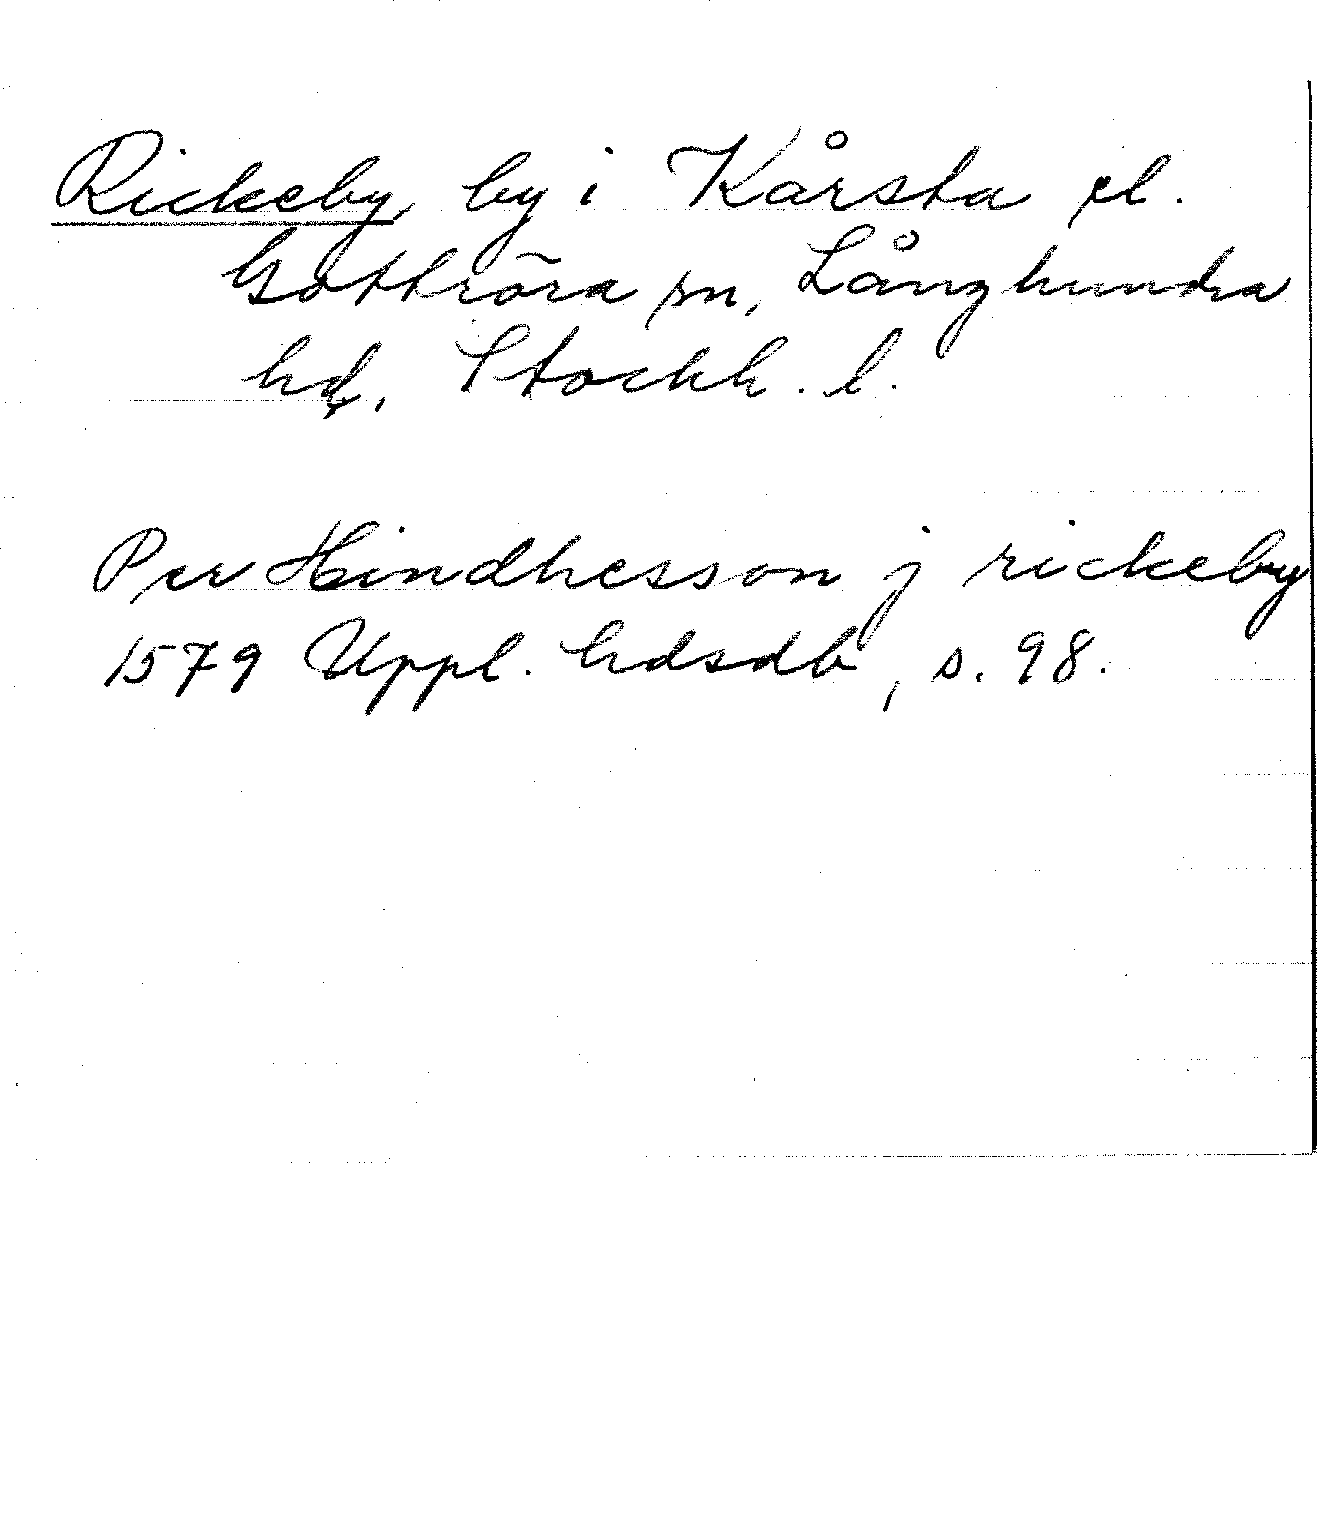 Rickeby, by i Kårsta el.
Gottröra sn, Långhundra
hd, Stockh. l.
Per Hindhesson j rickeby
1579 Uppl. hdsdb, s. 98.